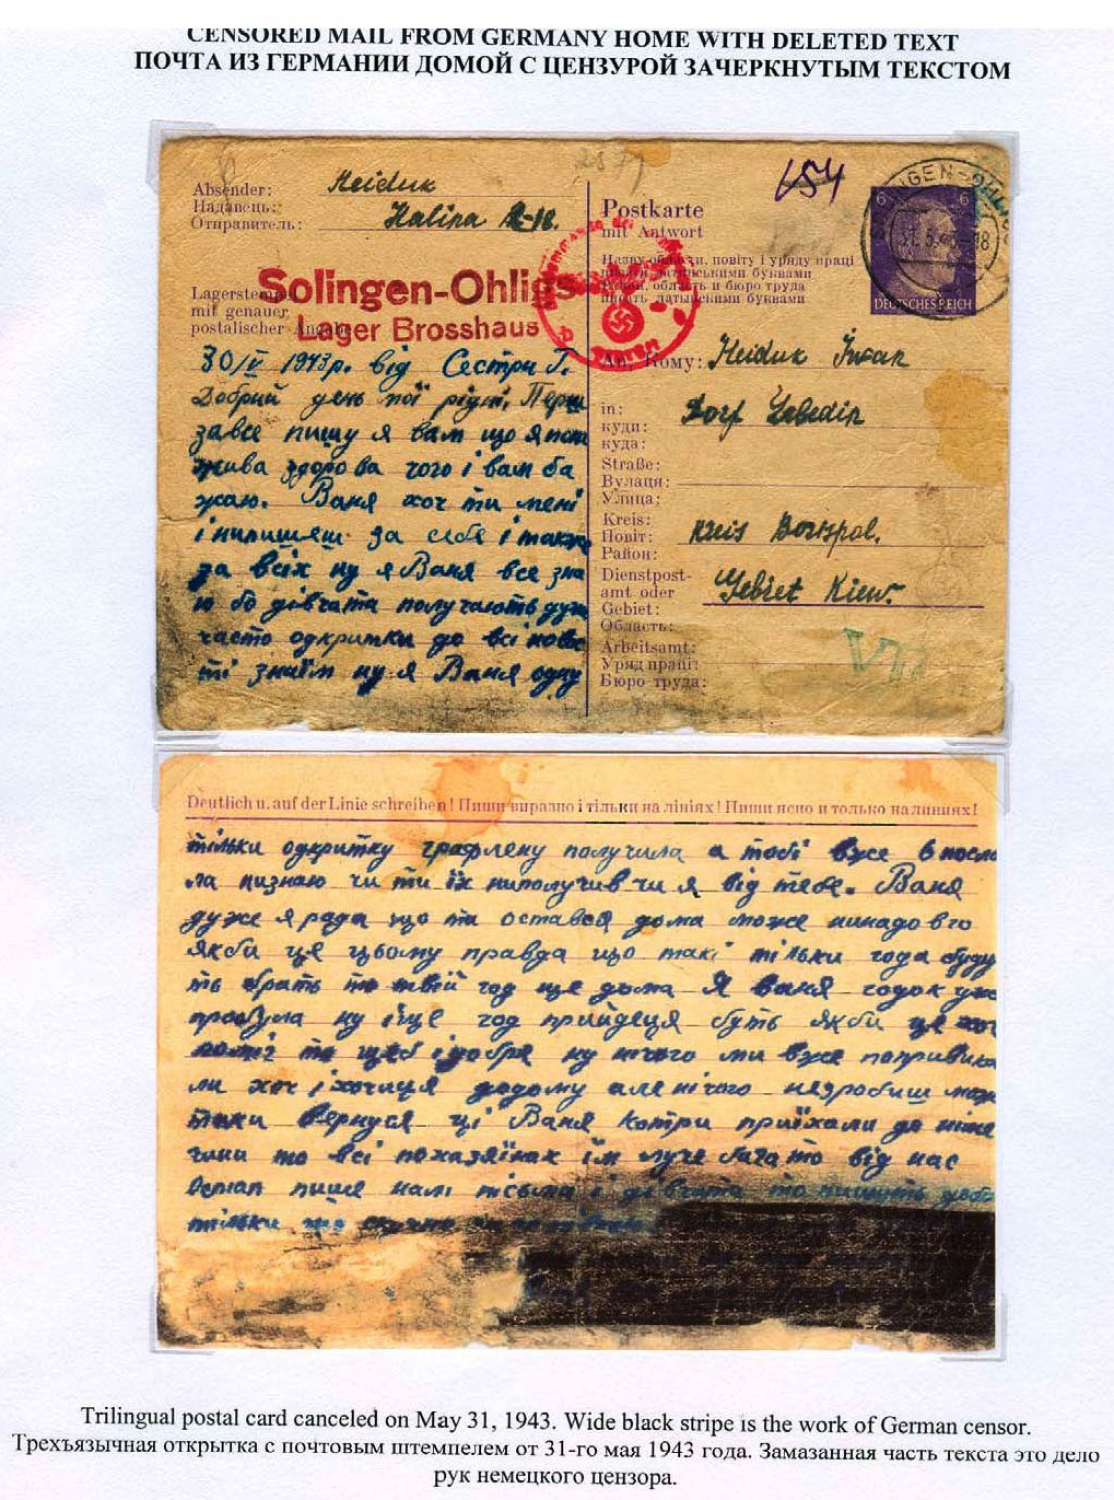 CENSORED MAIL FROM GERMANY HOME WITH DELETED TEXT
ПОЧТА ИЗ ГЕРМАНИИ ДОМОЙ С ЦЕНЗУРОЙ ЗАЧЕРКНУТЫМ ТЕКСТОМ
Absender:
Надавець:
Отправитель:
Heiduk
Halina
Solingen-Ohligs
Lager Brosshaus
Lagerstempel
mit genauer
postalischer Angabe
30/V 1943р. від Сестри Г.
Добрий день мої рідні, Перш
завсе пишу я вам що я пок
жива здорова чого і вам ба
жаю. Ваня хоч ти мені
і нипишеш за себе і також
за всіх ну я Ваня все зна
ю бо дівчата получають дуже
часто одкритки до всі новос
ті знаїм ну я Ваня одну
654
Postkarte
mit Antwort
Назву области, повіту і уряду праці
писати латинськими буквами
Район, область и бюро труда
писать латынскими буквами
SOLINGEN-OHLIGS
31.5.43-18
6 6
DEUTSCHES REICH
An, Кому: Heiduk Iwan
in:
куди:
куда:
Dorf Lebedin
Straße:
Вулаця:
Улица:
Kreis:
Повіт:
Район:
Kreis Borispol.
Dienstpost-
amt oder
Gebiet:
Область:
Gebiet Kiew.
Arbeitsamt:
Уряд праці:
Бюро труда:
Deutlich u. auf der Linie schreiben! Пиши виразно і тільки на лініях! Пиши ясно и только на линиях!
тільки одкритку графлену получила а тобі вже 6 посла
ла низнаю чи ти їх ниполучив чи я від тебе. Ваня
дуже я рада що ти остався дома може нинадовго
якби це цьому правда що такі тільки года буду
ть брать то твій год ще дома Я Ваня годок уже
пробула ну іще год прийдеця буть якби це хоч
то щеб і добре ну нічого ми вже попривика
ли хоч і хочиця додому але нічого незробиш може
таки вернуся ці Ваня котри приїхали до німе
чини то всі похазяїнах їм луче багато від нас
пише нам письма і дівчата то пишуть добре
тільки
Trilingual postal card canceled on May 31, 1943. Wide black stripe is the work of German censor.
Трехъязычная открытка с почтовым штемпелем от 31-го мая 1943 года. Замазанная часть текста это дело
рук немецкого цензора.